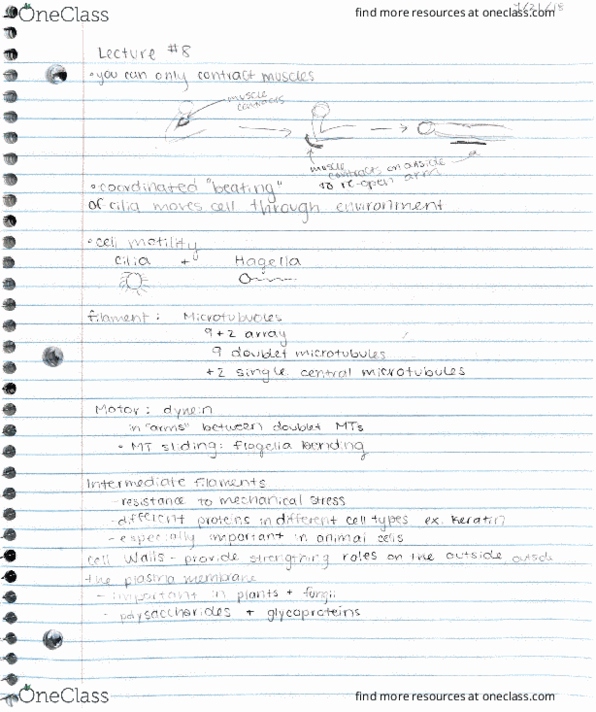 OneClass
find more resources at oneclass.com
7/21/18
Lecture #8
• you can only contract muscles
muscle
contracts
muscle
contracts on outside
to re-open arm
• coordinated "beating"
of cilia moves cell through environment
• cell motility
cilia + flagella
filament: Microtubules
9+2 array
9 doublet microtubules
+2 single central microtubules
Motor: dynein
in "arms" between doublet MTs
- MT sliding: flagella bending
Intermediate filaments
- resistance to mechanical stress
- different proteins in different cell types ex. Keratin
- especially important in animal cells
cell walls - provide strengthing roles on the outside outside
the plasma membrane
- important in plants + fungii
- polysaccharides + glycoproteins
OneClass
find more resources at oneclass.com